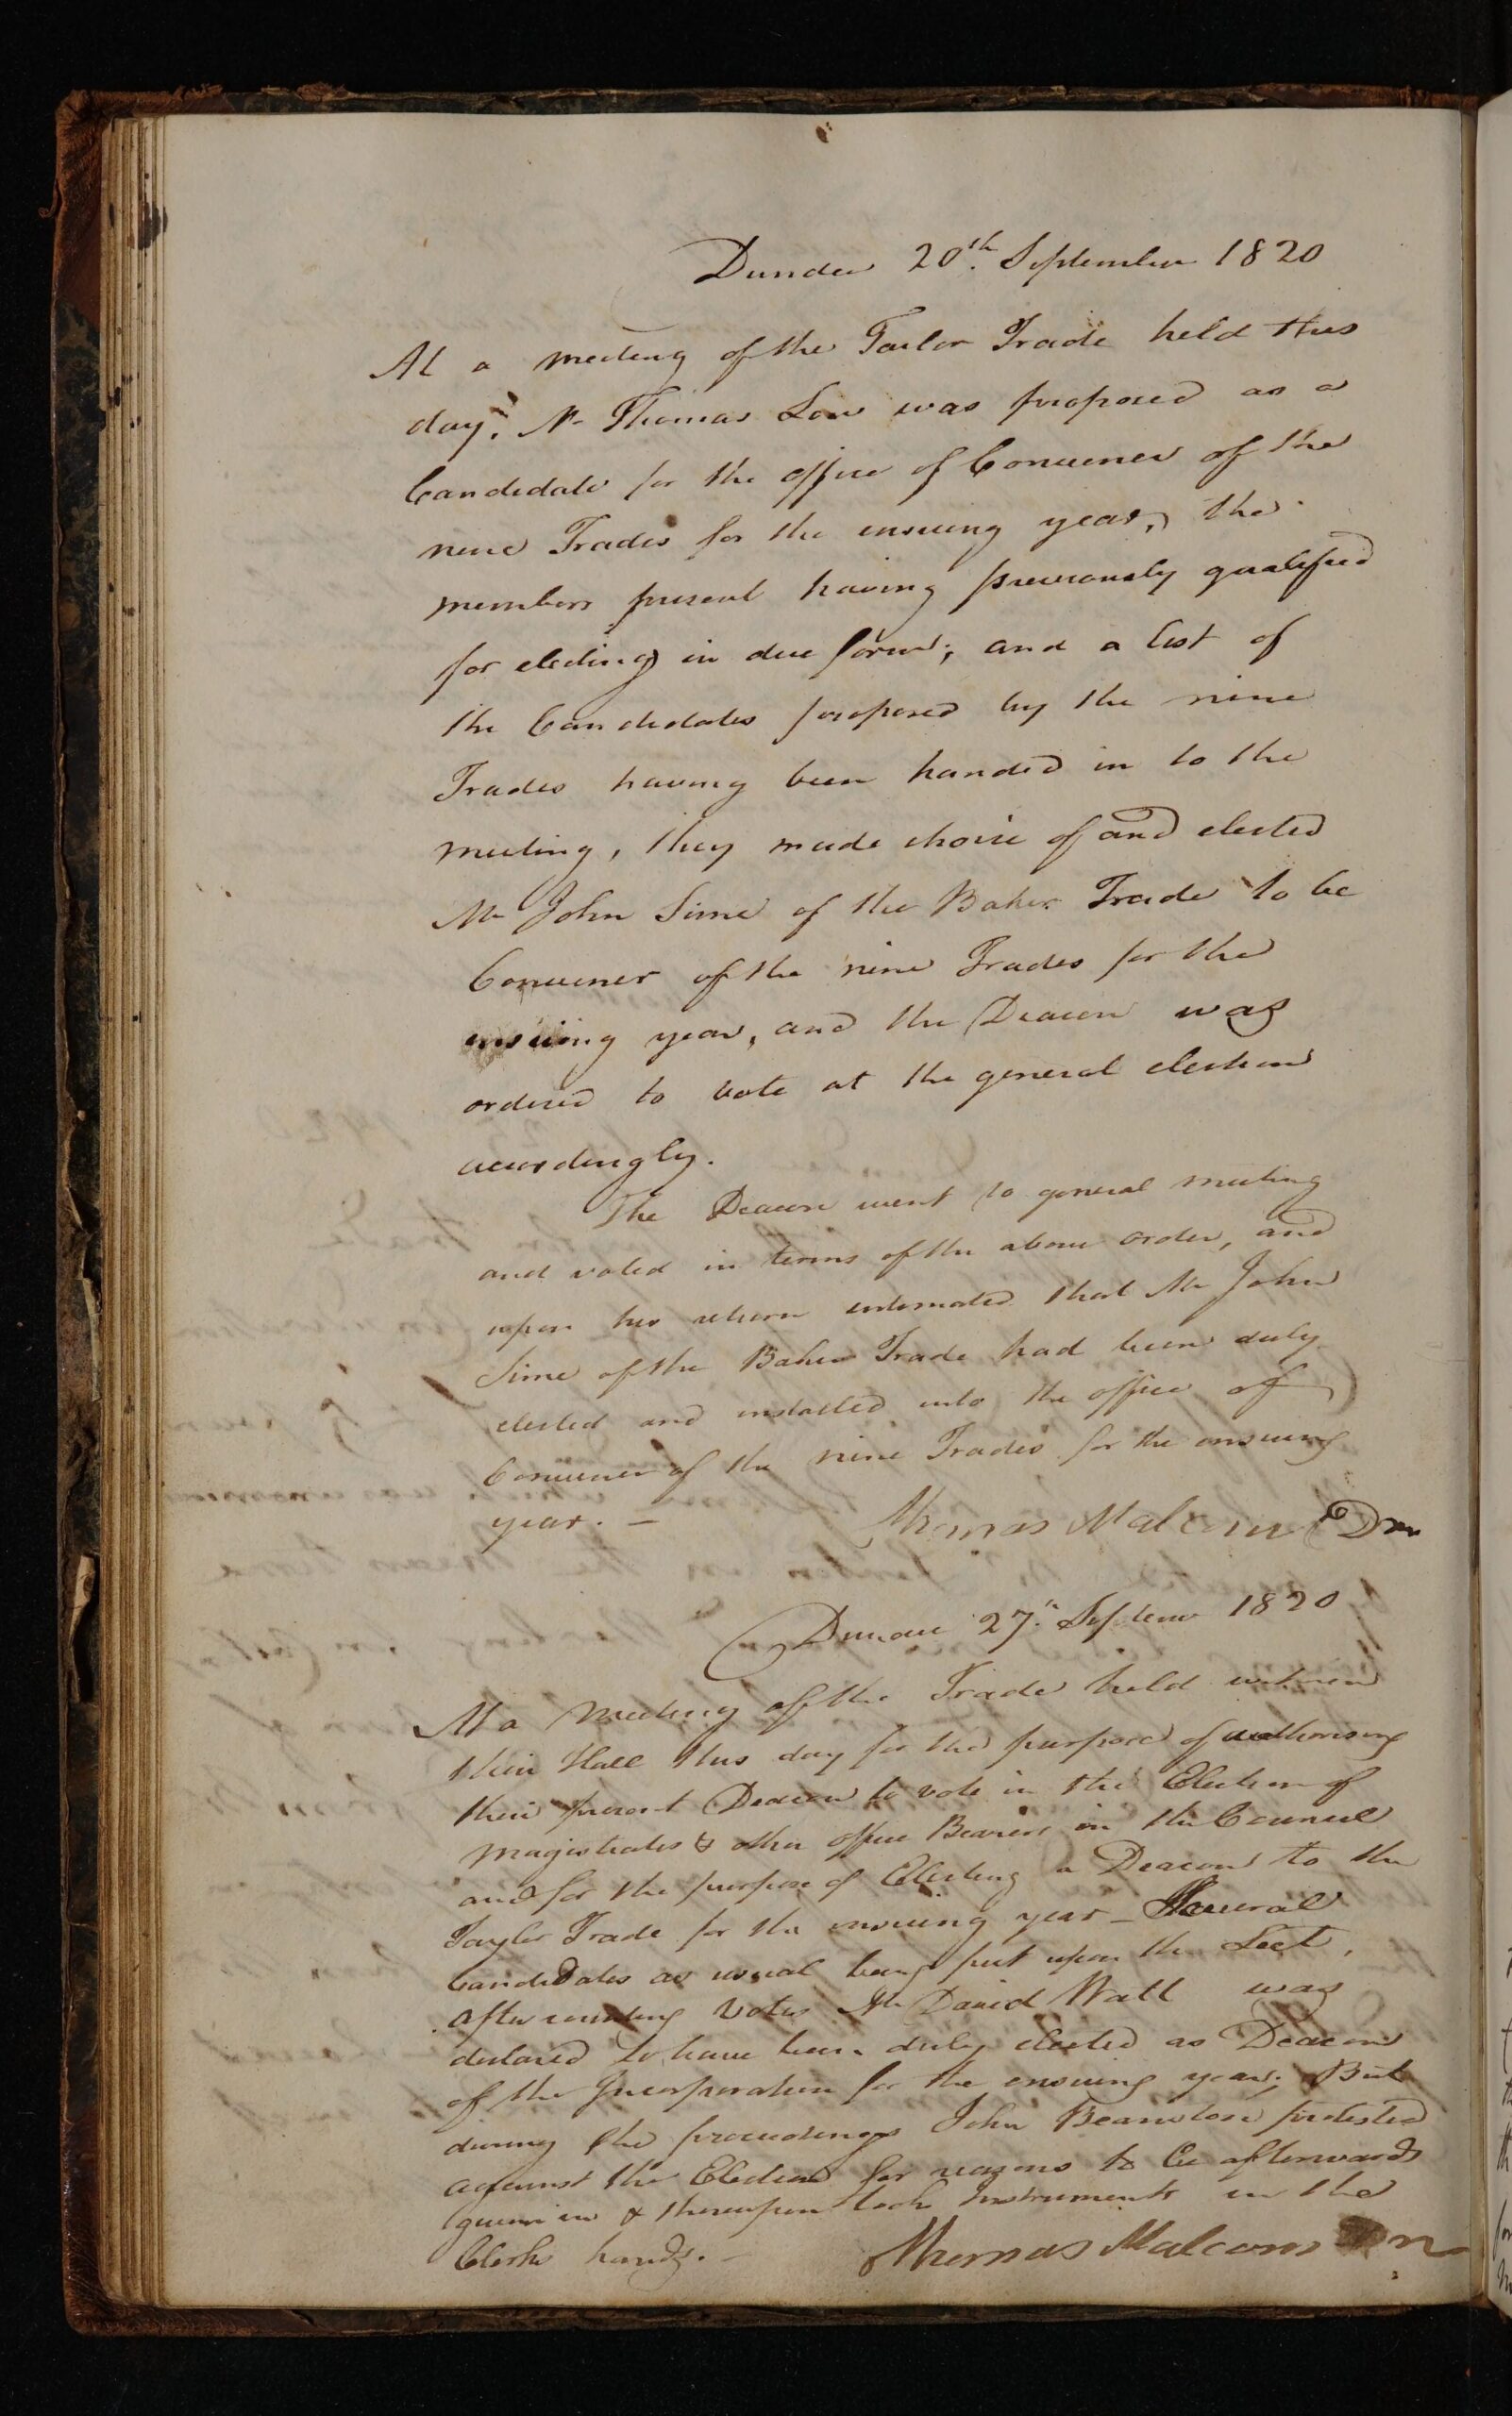 Dundee 20th. September 1820
At a meeting of the Tailor Trade held this
day, Mr Thomas Low was proposed as a
Candidate for the office of Convener of the
nine Trades for the ensuing year, the
members present having previously qualified
for electing in due form; and a list of
the Candidates proposed by the nine
Trades having been handed in to the
meeting, they made choice of and elected
Mr John Sime of the Baker Trade to be
Convener of the nine Trades for the
ensuing year, and the Deacon was
ordered to vote at the general election
accordingly.
The Deacon went to general meeting
and voted in terms of the above order, and
upon his return intimated that Mr John
Sime of the Baker Trade had been duly
elected and installed into the office of
Convener of the nine Trades for the ensuing
year. —
Thomas Malcom Dn
Dundee 27th Septemr 1820
At a Meeting of the Trade held within
their Hall this day for the purpose of authorising
their present Deacon to vote in the Election of
Magistrates & other office Bearers in the Council
and for the purpose of Electing a Deacon to the
Taylor Trade for the ensuing year — Several
Candidates as usual being put upon the Leet,
after counting Votes Mr David Watt was
declared to have been duly elected as Deacon
of the Incorporation for the ensuing year; But
during the proceedings John protested
against the Election for reasons to be afterwards
given in & thereupon took Instruments in the
Clerks hands. —
Thomas Malcom Dn